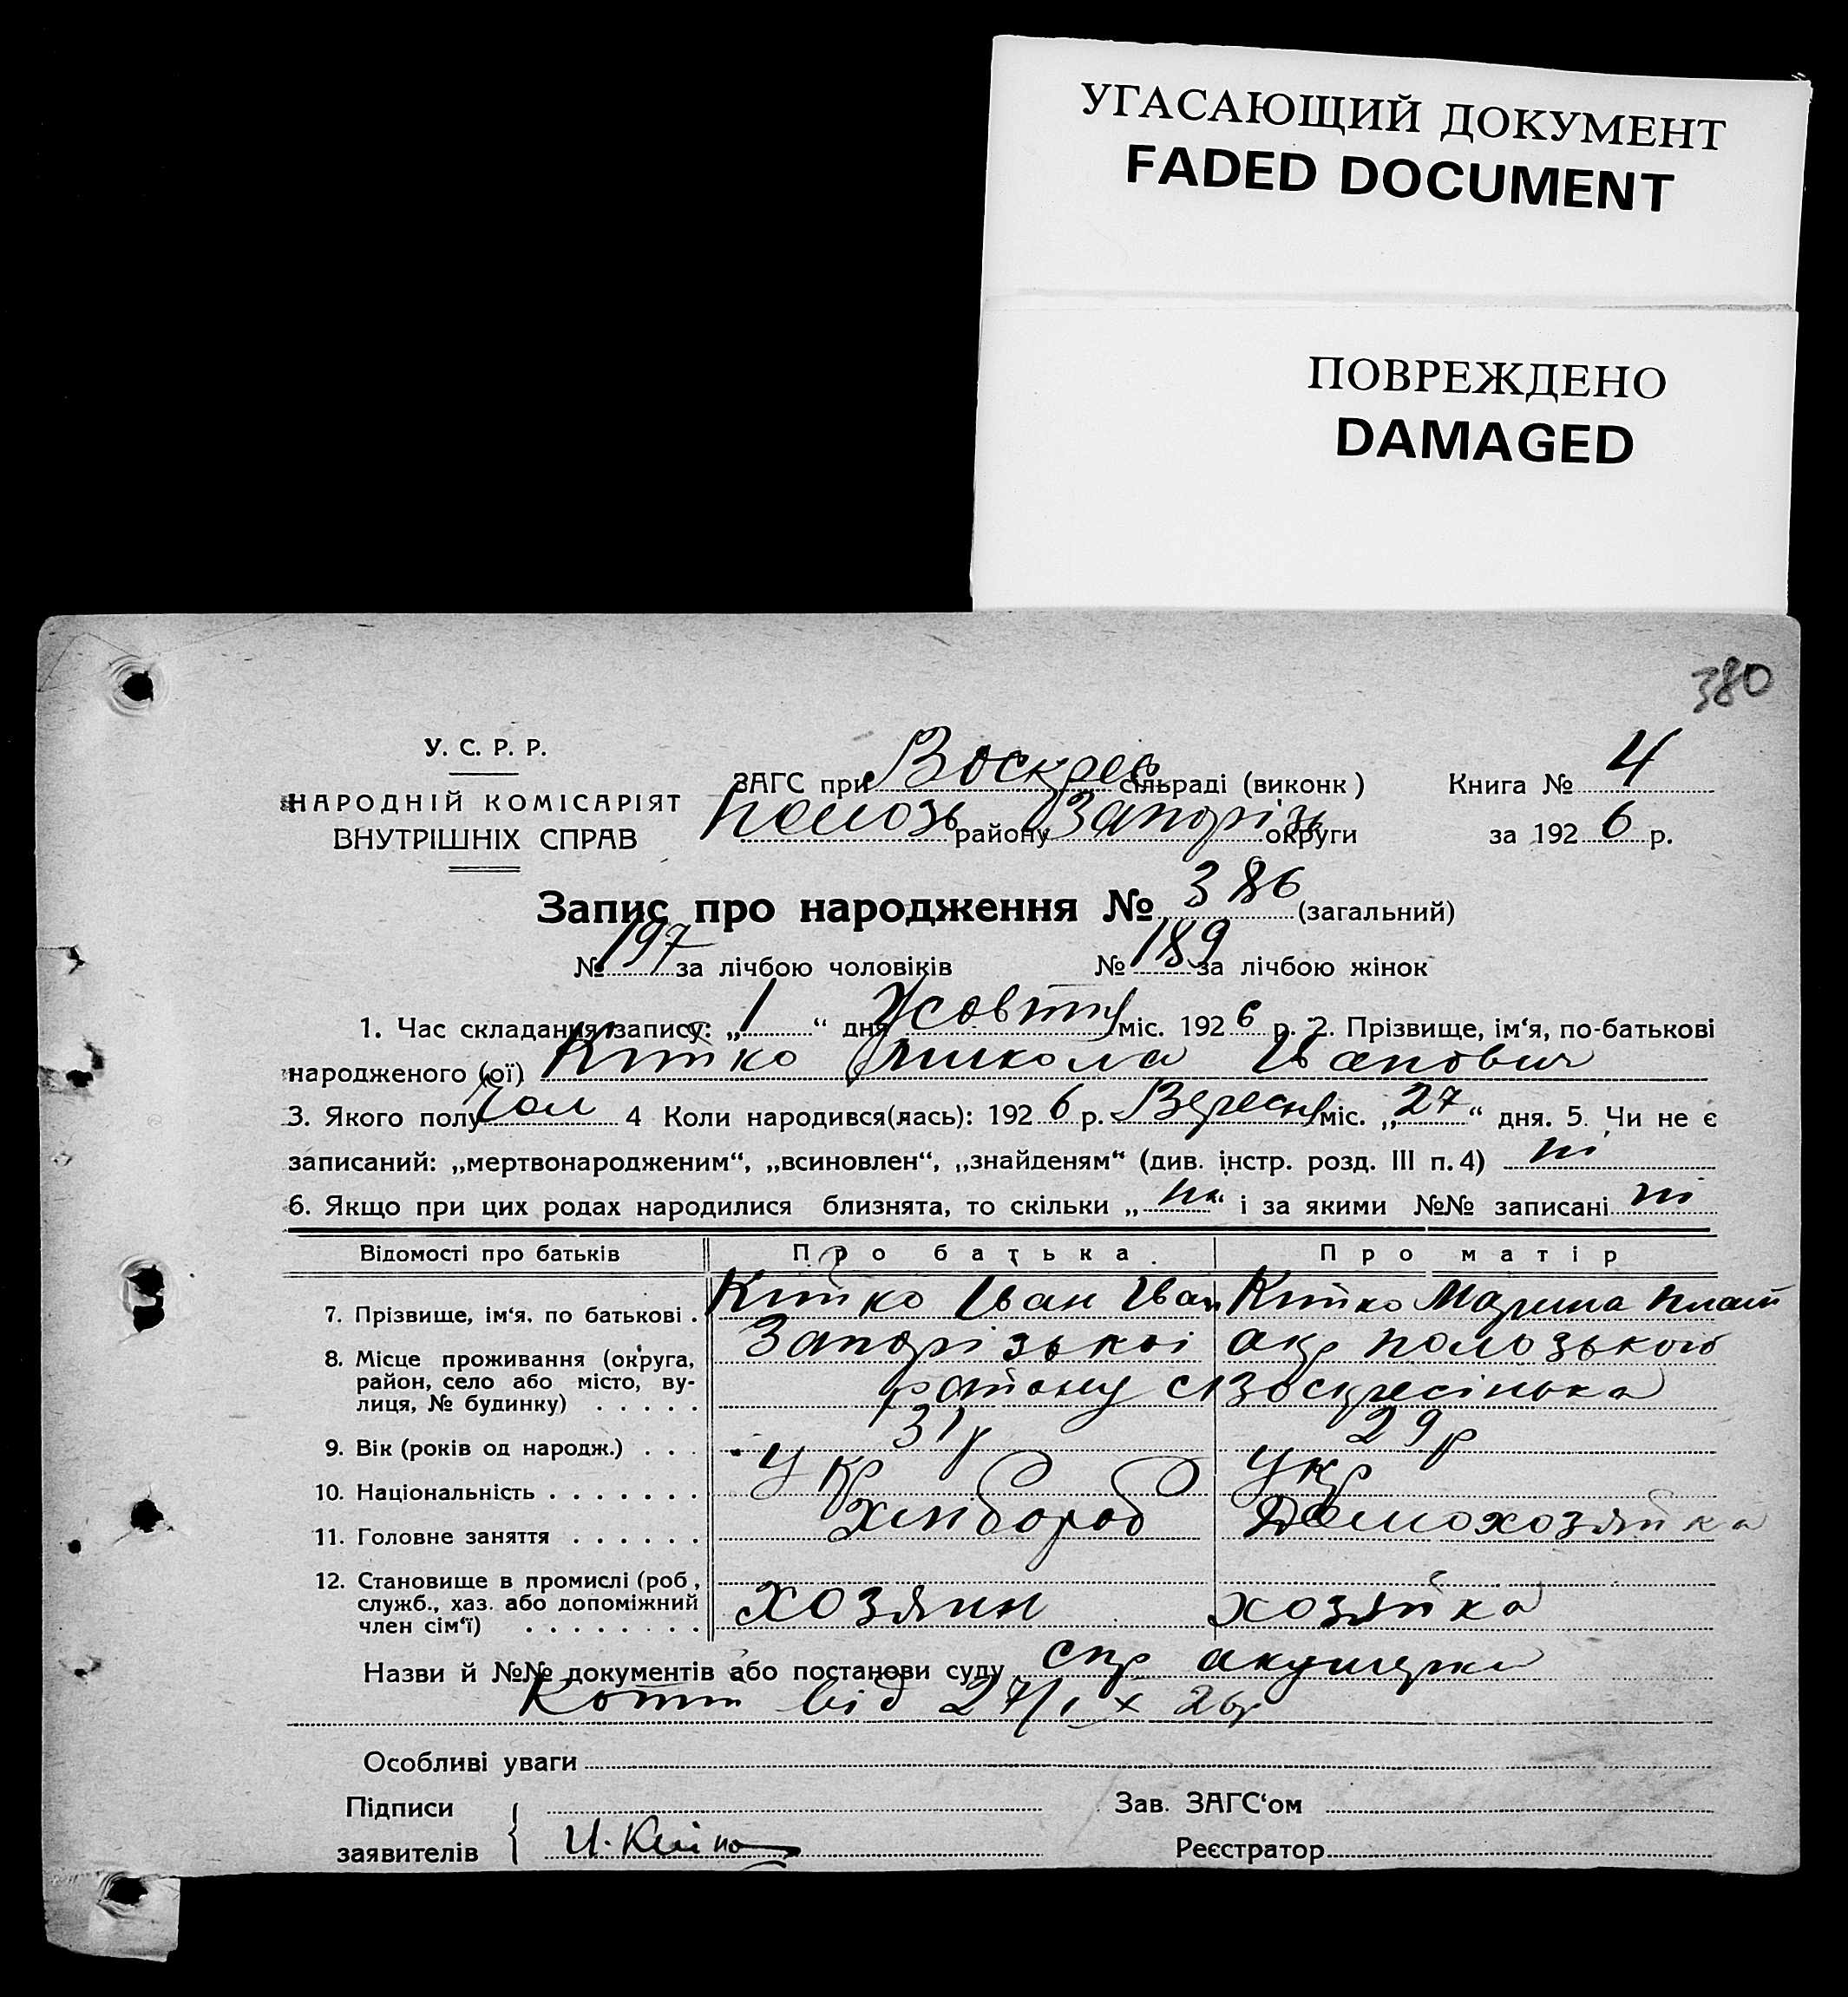 УГАСАЮЩИЙ ДОКУМЕНТ
FADED DOCUMENT
ПОВРЕЖДЕНО
DAMAGED
380
У. С. Р. Р.
НАРОДНІЙ КОМІСАРІЯТ
ВНУТРІШНІХ СПРАВ
ЗАГС при Воскрес сільраді (виконк) Книга № 4
Полозь району Запоріз округи за 1926 р.
Запис про народження № 386 (загальний)
№ 197 за лічбою чоловіків № 189 за лічбою жінок
1. Час складання запису: „1“ дня Жовтня міс. 1926 р. 2. Прізвище, ім‘я, по-батькові
народженого (ої) Кітко Микола Іванович
3. Якого полу Чол 4 Коли народився(лась): 1926 р. Вересня міс. „27“ дня. 5. Чи не є
записаний: „мертвонародженим“, „всиновлен“, „знайденям“ (див. інстр. розд. III п. 4) ні
6. Якщо при цих родах народилися близнята, то скільки „ні“ і за якими №№ записані ні
Відомості про батьків Про батька Про матір
7. Прізвище, ім‘я, по батькові . Кітко Іван Іван Кітко Марина Плат
8. Місце проживання (округа, район, село або місто, вулиця, № будинку) . . . . . Запорізькоі окр Полозького
району с Воскресінька
9. Вік (років од народж.) . . . 31р 29р
10. Національність . . . . . . . укр укр
11. Головне заняття . . . . . . хлібороб Домохозяйка
12. Становище в промислі (роб., служб., хаз. або допоміжний член сім‘ї) . . . . . . . . хозяин хозяйка
Назви й №№ документів або постанови суду спр акушерки
від 27/IX 26р
Особливі уваги
Підписи Зав. ЗАГС‘ом
заявителів И. Кітко Реєстратор